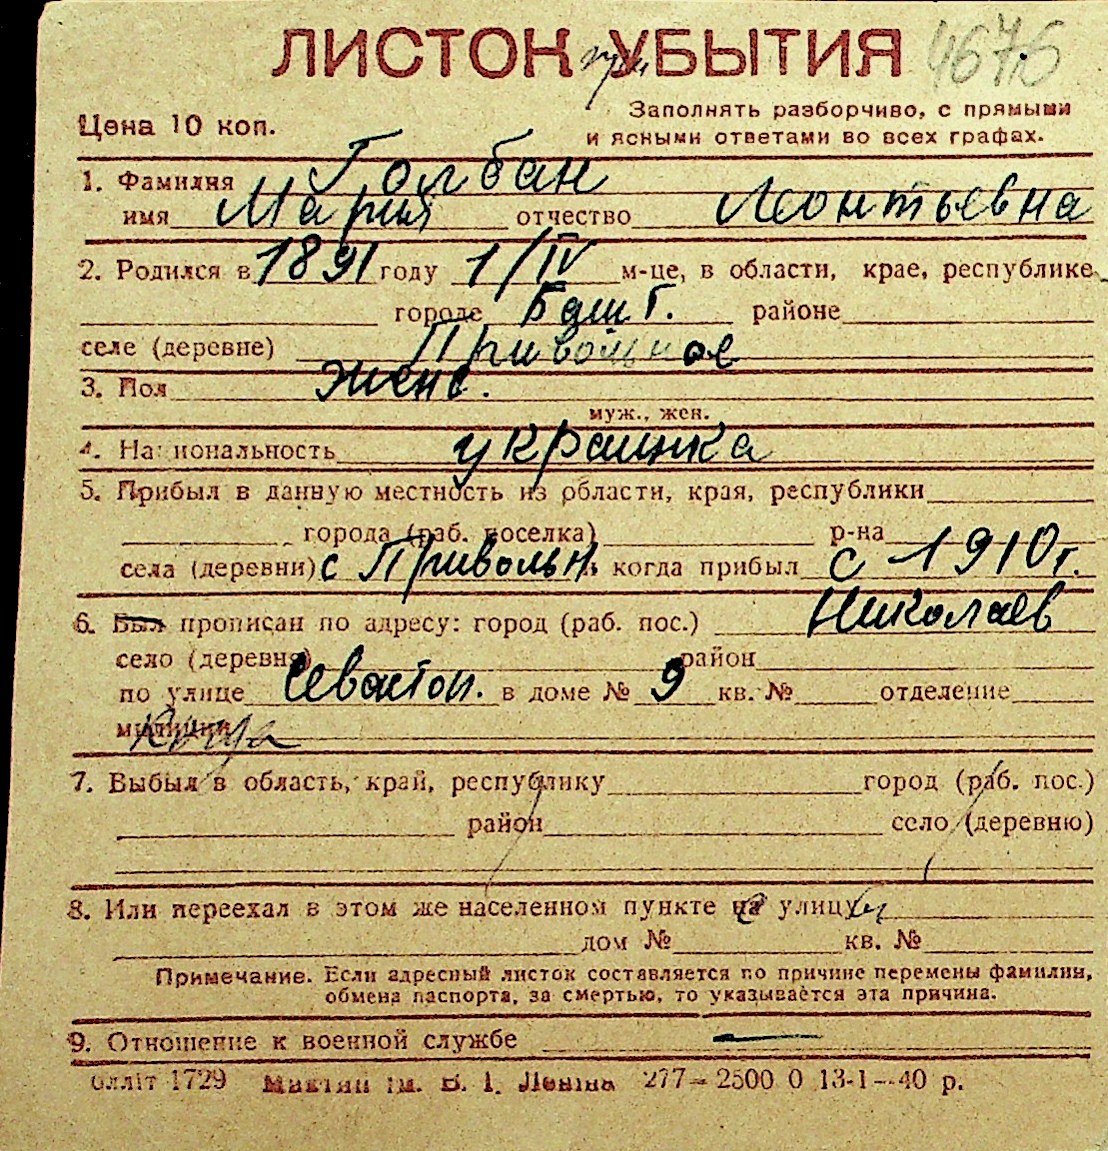 ЛИСТОК УБЫТИЯ 4676
Цена 10 коп.
Заполнять разборчиво, с прямыми
и ясными ответами во всех графах.
1. Фамилия Голбан
имя Мария отчество Леонтьевна
2. Родился в 1891 году 1/IV м-це, в области, крае, республике
городе Башт. районе
селе (деревне) Привольное
3. Пол женс.
муж., жен.
4. Национальность украинка
5. Прибыл в данную местность из области, края, республики
города (раб. поселка) р-на
села (деревни) с Привольн. когда прибыл с 1910 г.
6. Был прописан по адресу: город (раб. пос.) Николаев
село (деревня) район
по улице Севастоп. в доме № 9 кв. № отделение
милиции
7. Выбыл в область, край, республику город (раб. пос.)
район село (деревню)
8. Или переехал в этом же населенном пункте на улицу
дом № кв. №
Примечание. Если адресный листок составляется по причине перемены фамилии,
обмена паспорта, за смертью, то указывается эта причина.
9. Отношение к военной службе —
Облліт 1729 ім. В. І. Леніна 277—2500 0 13-1—40 р.